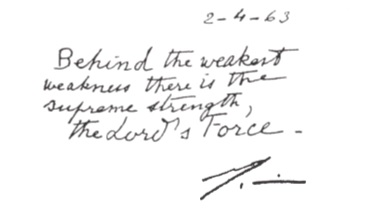 2-4-63
Behind the weakest
weakness there is the
supreme strength,
the Lord's Force -